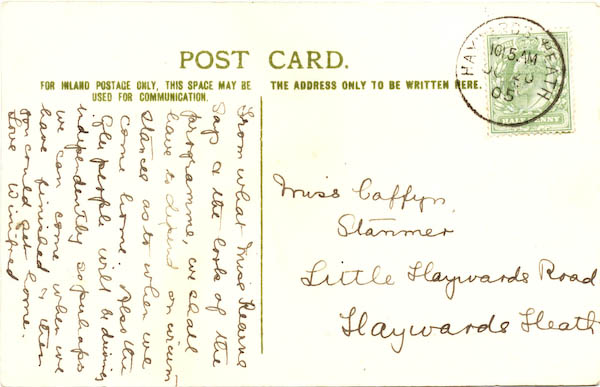 POST CARD.
FOR INLAND POSTAGE ONLY, THIS SPACE MAY BE
USED FOR COMMUNICATION.
THE ADDRESS ONLY TO BE WRITTEN HERE.
HAYWARDS HEATH
10 15 AM
05
HALFPENNY
From what Miss Hearne
says & the look of the
programme, we shall
have to depend on circum
stances as to when we
come home. Also the
people will be driving
independently so perhaps
we can come when we
have finished & then
you could get home.
Love Winifred
Miss Caffyn,
Stanmer
Little Haywards Road
Haywards Heath